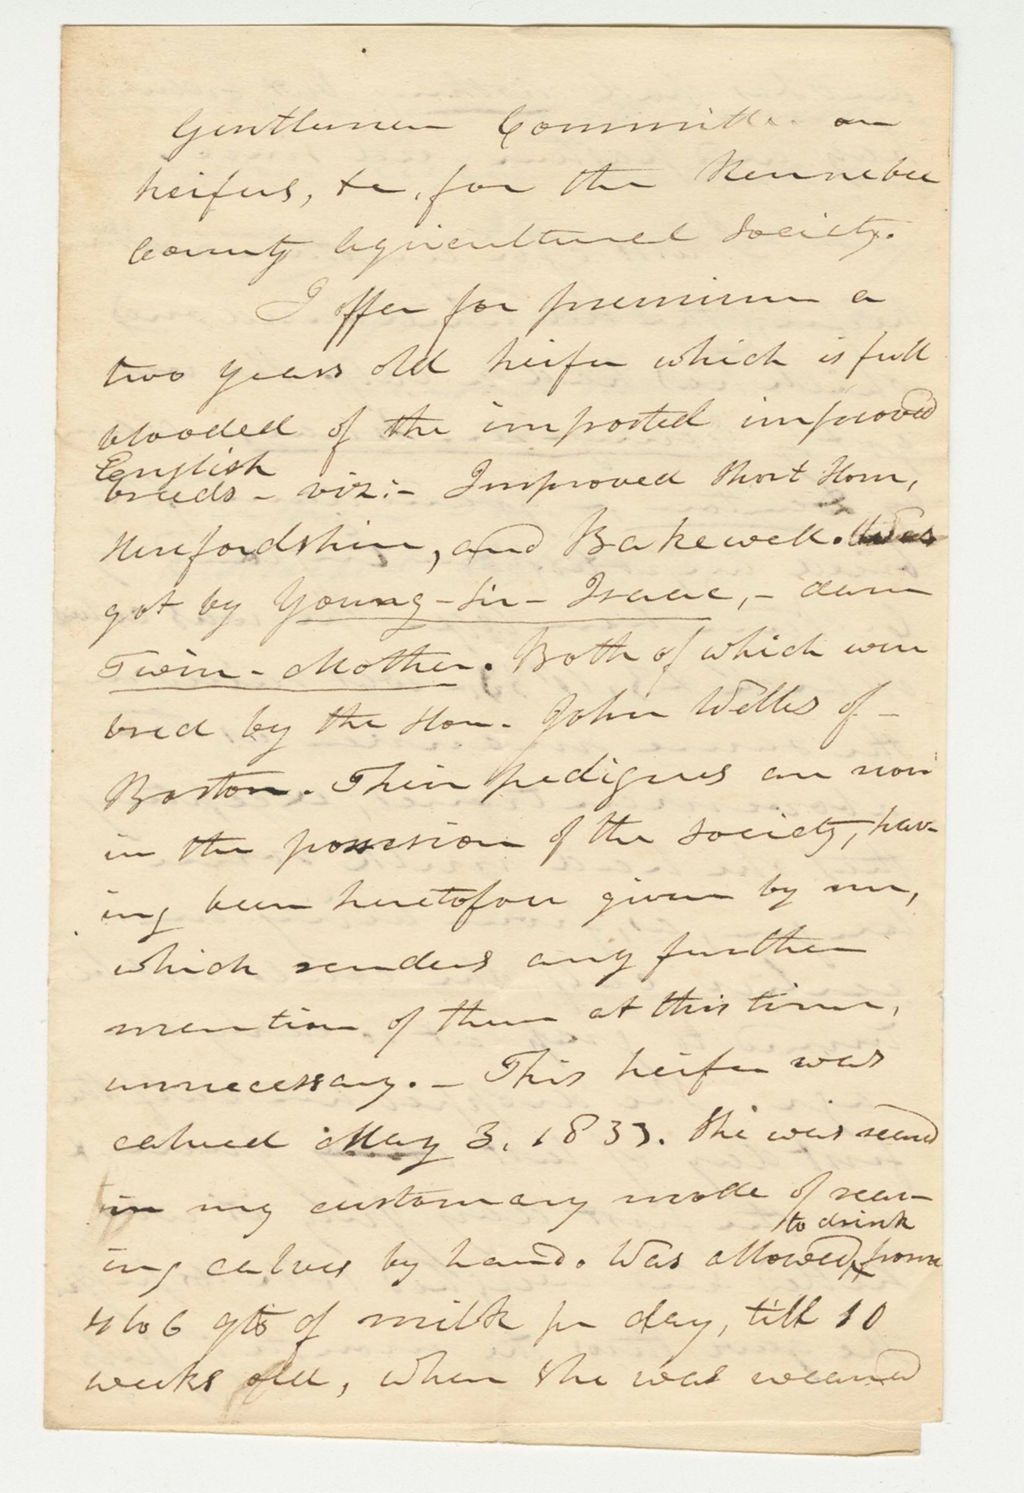 Gentlemen Committee on
heifers, &c, for the Kennebec
County Agricultural Society.
I offer for premium a
two years old heifer which is full
blooded of the imported improved
English
breeds - viz:- Improved Short Horn,
Herefordshire, and Bakewell. Was
got by Young-Sir-Isaac, - dam
Twin-Mother. Both of which were
bred by the Hon. John Welles of -
Boston. Their pedigrees are now
in the possession of the society, hav-
ing been heretofore given by me,
which renders any further
mention of them at this time,
unnecessary. - This heifer was
calved May 3, 1833. She was reared
in my customary mode of rear-
to drink
ing calves by hand. Was allowed, from
4 to 6 qts of milk per day, till 10
weeks old, when she was weaned